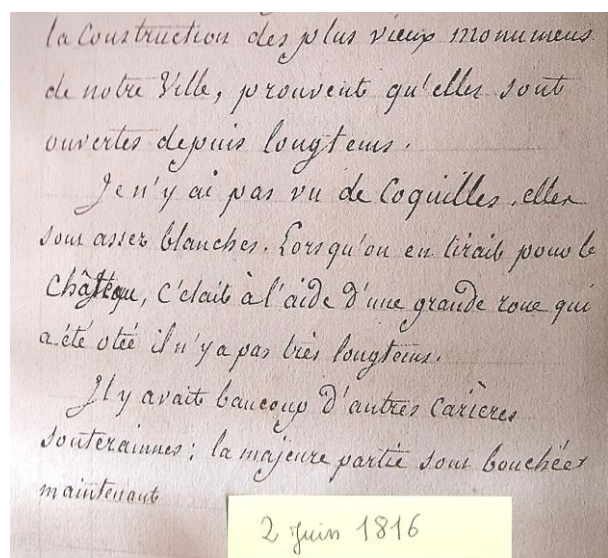 la Construction des plus vieux monumens
de notre Ville, prouvent qu'elles sont
ouvertes depuis longtems.
Je n'y ai pas vu de Coquilles, elles
sont assez blanches. Lorsqu'on en tirait pour le
Château, C'etait à l'aide d'une grande roue qui
a été otée il n'y a pas très longtems.
Il y avait baucoup d'autres Carières
souterainnes ; la majeure partie sont bouchées
maintenant
2 Juin 1816